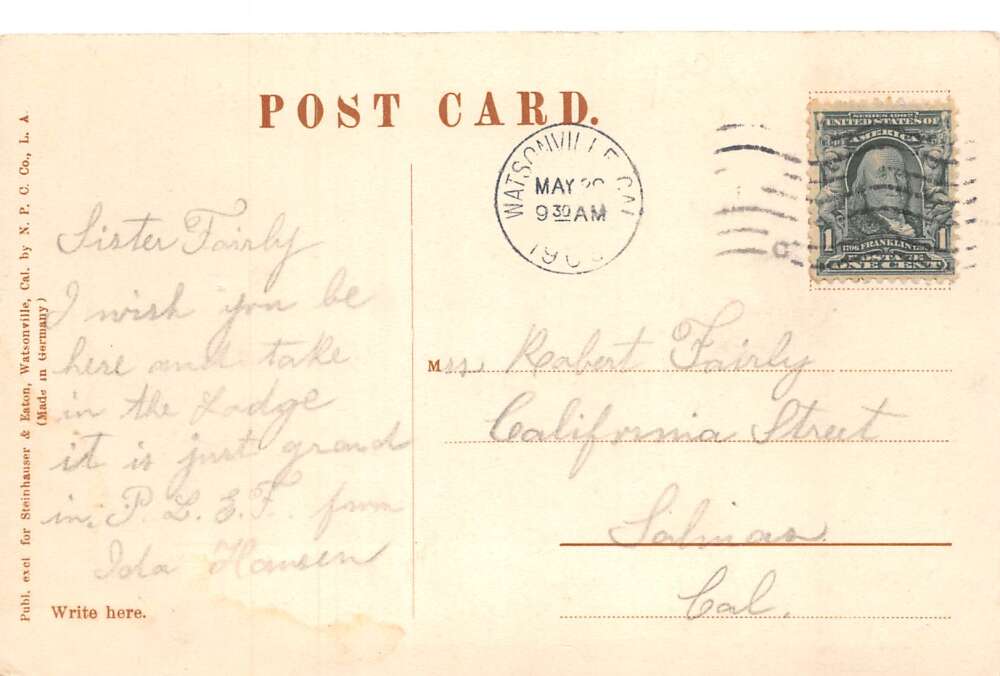 POST CARD.
WATSONVILLE, CAL
MAY
9 30 AM
SERIES 1902
UNITED STATES OF
AMERICA
1706 FRANKLIN 1790
POSTAGE
1
ONE CENT
Sister Fairly
I wish you be
here and take
in the Lodge
it is just grand
in. P. L. E. F. from
Ida Hansen
Mrs Robert Fairly
California Street
Salinas
Cal.
Write here.
Publ. excl for Steinhauser & Eaton, Watsonville, Cal. by N. P. C. Co., L. A.
(Made in Germany)